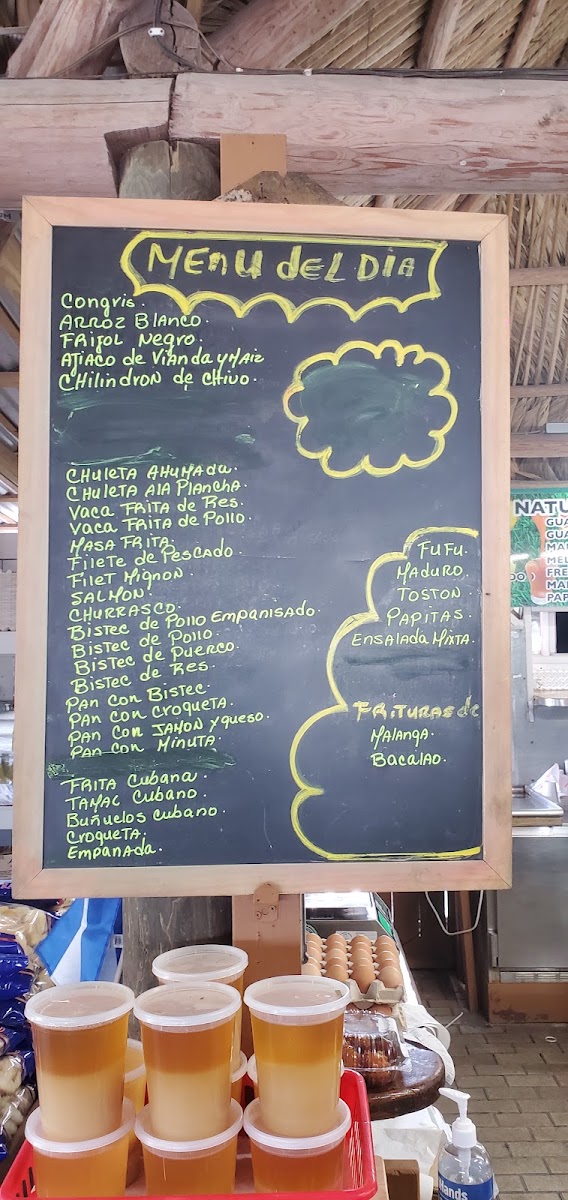 MENU DEL DIA
Congris.
ARROZ BLANCO.
FRIJOL NEGRO.
AJIACO de VIANDA y MAIZ
CHILINDRON de CHIVO.
CHULETA AHUMADA.
CHULETA ALA PLANCHA.
VACA FRITA de Res.
VACA FRITA de Pollo.
MASA FRITA.
Filete de Pescado.
Filet Mignon
SALMON.
CHURRASCO.
BISTEC de Pollo Empanisado.
BISTEC de Pollo.
BISTEC de PUERCO.
BISTEC de Res.
PAN CON BISTEC.
PAN CON CROQUETA.
PAN CON JAMON y queso.
PAN CON MINUTA.
FRITA CUBANA.
TAMAL CUBANO.
BUÑUELOS CUBANO.
CROQUETA.
EMPANADA.
FUFU.
MADURO.
TOSTON.
PAPITAS.
ENSALADA MIXTA.
FRITURAS de
MALANGA.
BACALAO.
NATU
GUA
GUA
MA
MEL
FRE
MA
PAP